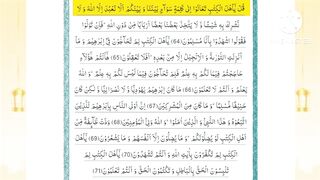 قُلْ يَٰأَهْلَ الْكِتَٰبِ تَعَالَوْا إِلَىٰ كَلِمَةٍ سَوَآءٍ بَيْنَنَا وَ بَيْنَكُمْ أَلَّا نَعْبُدَ إِلَّا اللَّهَ وَ لَا
نُشْرِكَ بِهِ شَيْئًا وَ لَا يَتَّخِذَ بَعْضُنَا بَعْضًا أَرْبَابًا مِّن دُونِ اللَّهِ فَإِن تَوَلَّوْا
فَقُولُوا اشْهَدُوا بِأَنَّا مُسْلِمُونَ (64) يَٰأَهْلَ الْكِتَٰبِ لِمَ تُحَآجُّونَ فِي إِبْرَٰهِيمَ وَ مَا
أُنزِلَتِ التَّوْرَىٰةُ وَ الْإِنجِيلُ إِلَّا مِن بَعْدِهِ أَفَلَا تَعْقِلُونَ (65) هَٰأَنتُمْ هَٰؤُلَآءِ
حَٰجَجْتُمْ فِيمَا لَكُم بِهِ عِلْمٌ فَلِمَ تُحَآجُّونَ فِيمَا لَيْسَ لَكُم بِهِ عِلْمٌ وَ اللَّهُ
يَعْلَمُ وَ أَنتُمْ لَا تَعْلَمُونَ (66) مَا كَانَ إِبْرَٰهِيمُ يَهُودِيًّا وَ لَا نَصْرَانِيًّا وَ لَٰكِن كَانَ
حَنِيفًا مُّسْلِمًا وَ مَا كَانَ مِنَ الْمُشْرِكِينَ (67) إِنَّ أَوْلَى النَّاسِ بِإِبْرَٰهِيمَ لَلَّذِينَ
اتَّبَعُوهُ وَ هَٰذَا النَّبِيُّ وَ الَّذِينَ ءَامَنُوا وَ اللَّهُ وَلِيُّ الْمُؤْمِنِينَ (68) وَدَّت طَّآئِفَةٌ مِّنْ
أَهْلِ الْكِتَٰبِ لَوْ يُضِلُّونَكُمْ وَ مَا يُضِلُّونَ إِلَّا أَنفُسَهُمْ وَ مَا يَشْعُرُونَ (69) يَٰأَهْلَ
الْكِتَٰبِ لِمَ تَكْفُرُونَ بِـَٔايَٰتِ اللَّهِ وَ أَنتُمْ تَشْهَدُونَ (70) يَٰأَهْلَ الْكِتَٰبِ لِمَ
تَلْبِسُونَ الْحَقَّ بِالْبَٰطِلِ وَ تَكْتُمُونَ الْحَقَّ وَ أَنتُمْ تَعْلَمُونَ (71)